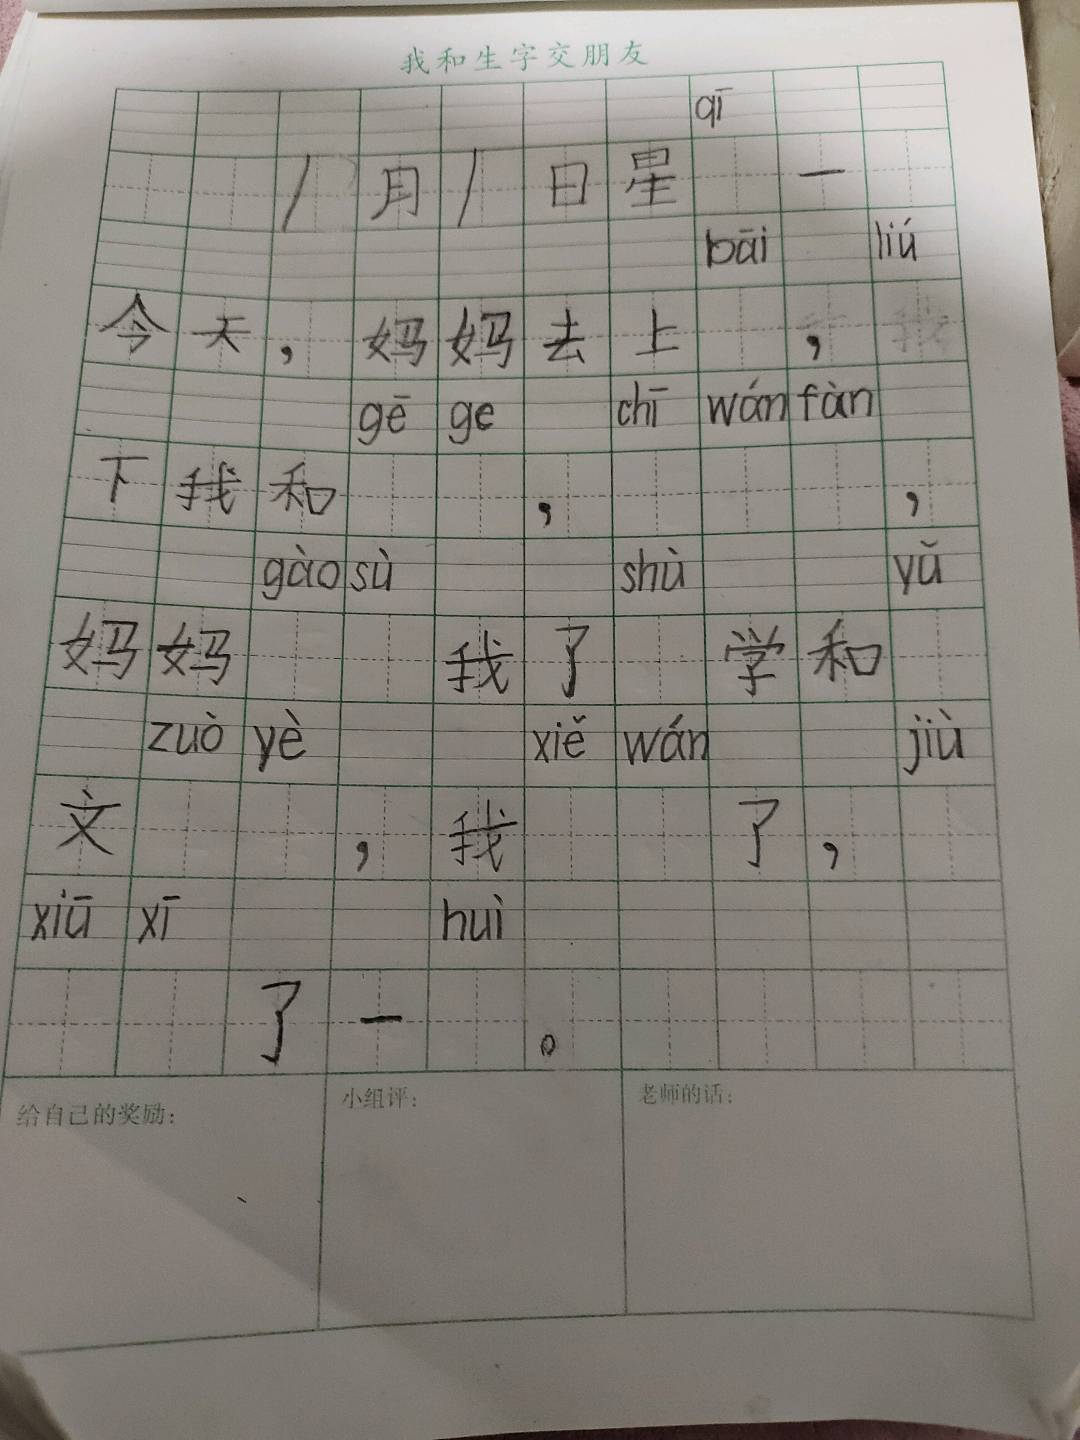 我和生字交朋友
qī
1月1日星 一
bāi liú
今天，妈妈去上 ，
gē ge chī wán fàn
下我和 ， ，
gào sù shù yǔ
妈妈 我了 学和
zuò yè xiě wán jiù
文 ，我 了，
xiū xī huì
了一 。
给自己的奖励： 小组评： 老师的话：